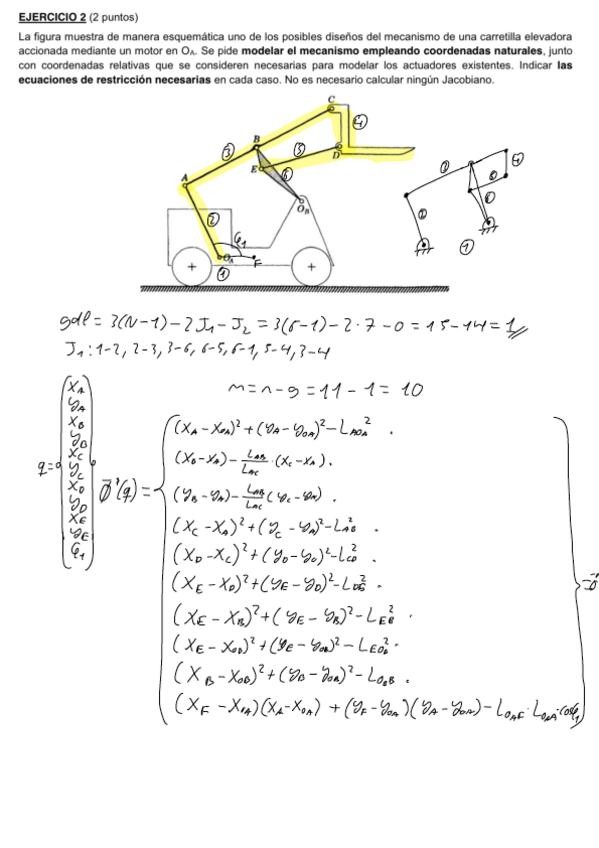 EJERCICIO 2 (2 puntos)
La figura muestra de manera esquemática uno de los posibles diseños del mecanismo de una carretilla elevadora
accionada mediante un motor en O_A. Se pide modelar el mecanismo empleando coordenadas naturales, junto
con coordenadas relativas que se consideren necesarias para modelar los actuadores existentes. Indicar las
ecuaciones de restricción necesarias en cada caso. No es necesario calcular ningún Jacobiano.
C
④
B
③
⑤
D
E
⑥
A
O_B
②
φ_1
O_A
F
①
+ +
gdl = 3(N-1) - 2J_1 - J_2 = 3(6-1) - 2·7 - 0 = 15 - 14 = 1
J_1: 1-2, 2-3, 3-6, 6-5, 6-1, 5-4, 3-4
m = n - g = 11 - 1 = 10
q = (x_A y_A x_B y_B x_C y_C x_D y_D x_E y_E φ_1)
Φ(q) =
(x_A - x_OA)² + (y_A - y_OA)² - L_AOA²
(x_B - x_A) - L_AB/L_AC · (x_C - x_A)
(y_B - y_A) - L_AB/L_AC (y_C - y_A)
(x_C - x_A)² + (y_C - y_A)² - L_AB²
(x_D - x_C)² + (y_D - y_C)² - L_CD²
(x_E - x_D)² + (y_E - y_D)² - L_DE²
(x_E - x_B)² + (y_E - y_B)² - L_EB²
(x_E - x_OB)² + (y_E - y_OB)² - L_EOB²
(x_B - x_OB)² + (y_B - y_OB)² - L_OBB²
(x_F - x_OA)(x_A - x_OA) + (y_F - y_OA)(y_A - y_OA) - L_OAF · L_OAA · cosφ_1
= 0